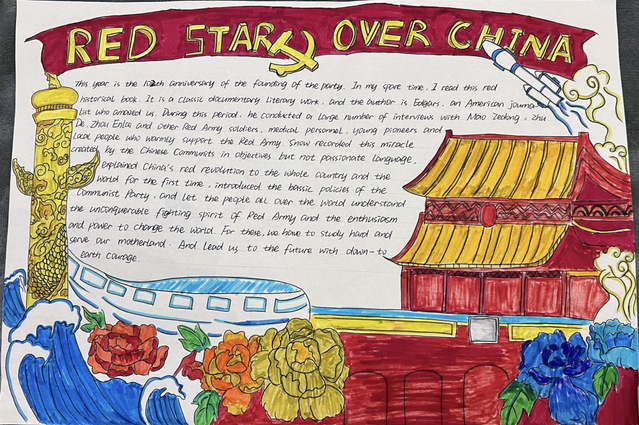 RED STAR OVER CHINA
This year is the 102th anniversary of the founding of the party. In my spare time, I read this red
historical book. It is a classic documentary literary work, and the author is Edgars, an American journa-
list who arrived us. During this period, he conducted a large number of interviews with Mao Zedong, Zhu
De, Zhou Enlai and other Red Army soldiers, medical personnel, young pioneers and
local people who warmly support the Red Army. Snow recorded this miracle
created by the Chinese Communits in objectives but not passionate language,
explained China's red revolution to the whole country and the
world for the first time, introduced the bassic policies of the
Communist Party, and let the people all over the world understand
the unconquerable fighting spirit of Red Army and the enthusiasm
and power to change the world. For these, we have to study hard and
serve our motherland. And Lead us to the future with down-to
earth courage.